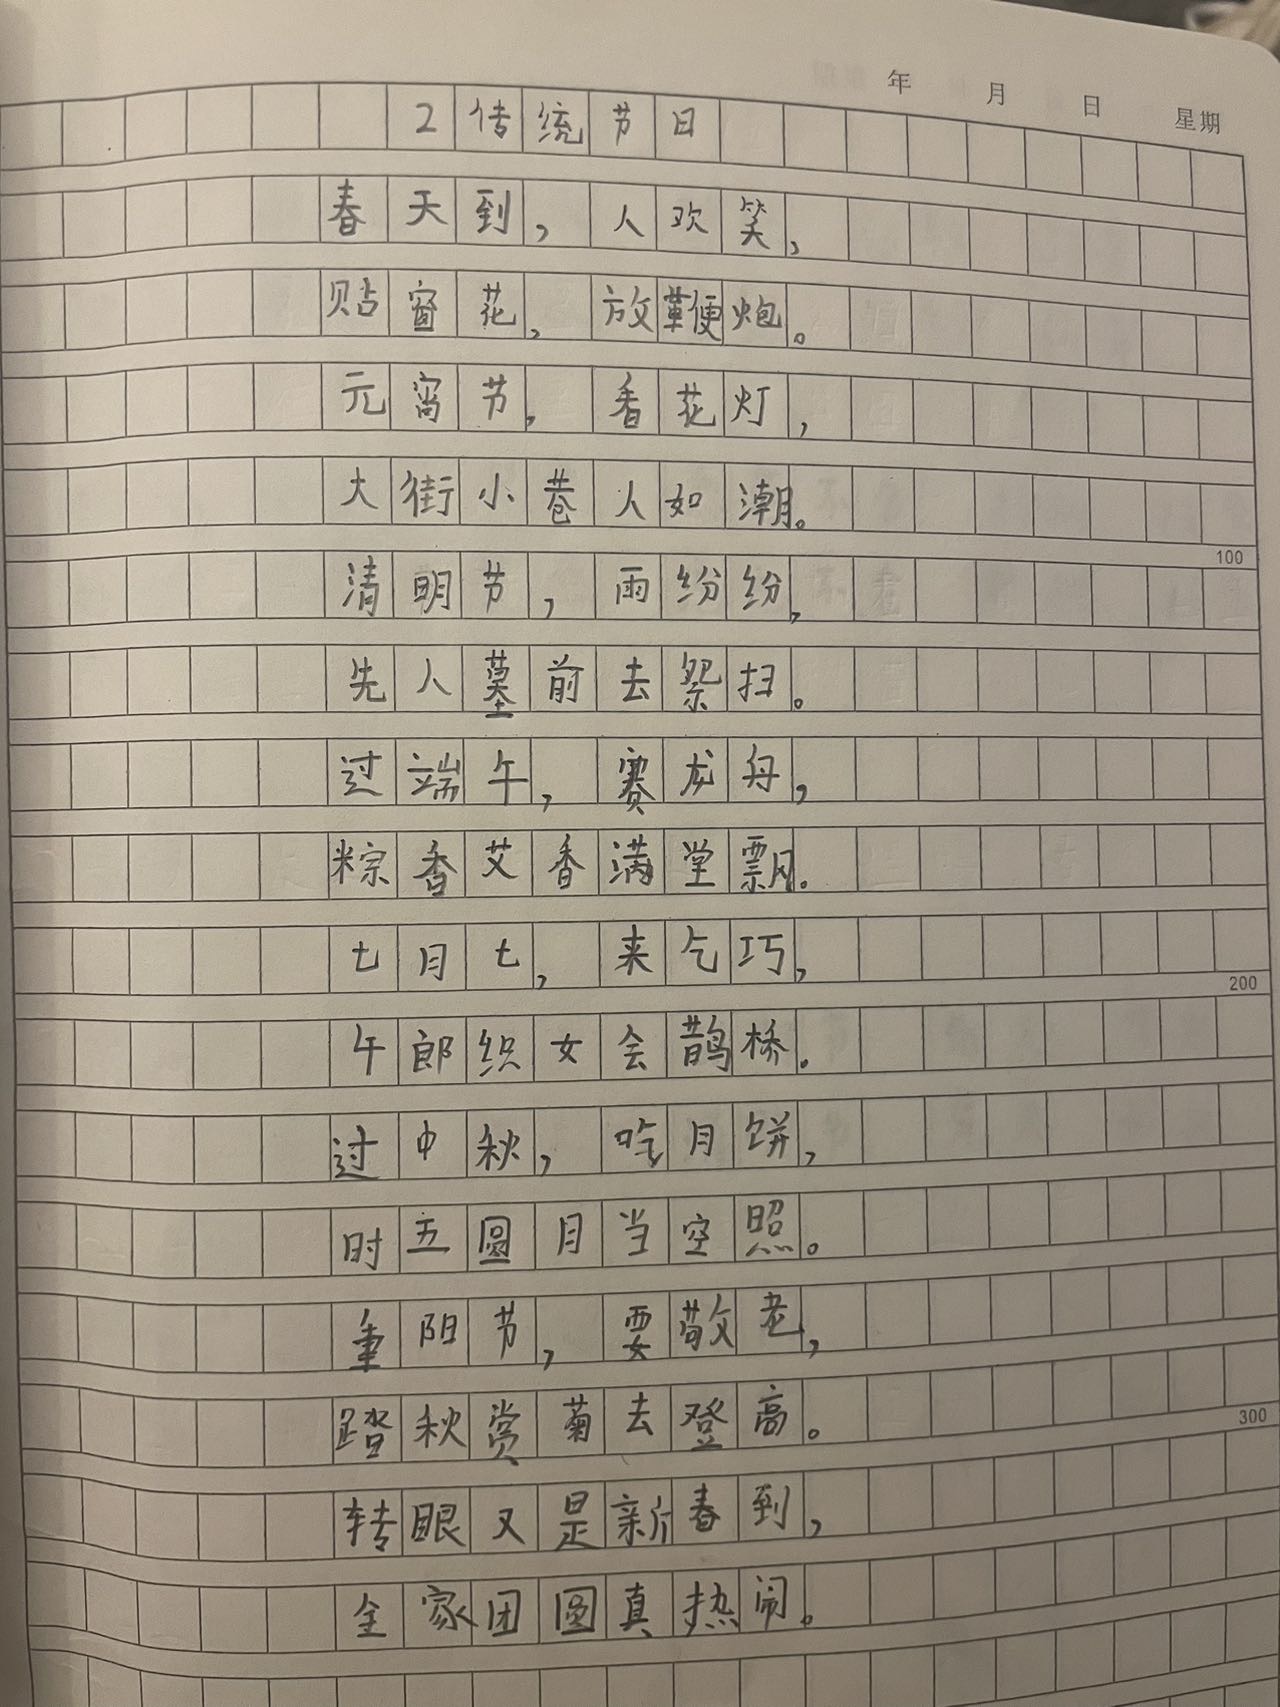 年 月 日 星期
2传统节日
春天到，人欢笑，
贴窗花，放鞭炮。
元宵节，香花灯，
大街小巷人如潮。
100
清明节，雨纷纷，
先人墓前去祭扫。
过端午，赛龙舟，
粽香艾香满堂飘。
七月七，来乞巧，
200
午郎织女会鹊桥。
过中秋，吃月饼，
时五圆月当空照。
重阳节，要敬老，
踏秋赏菊去登高。
300
转眼又是新春到，
全家团圆真热闹。